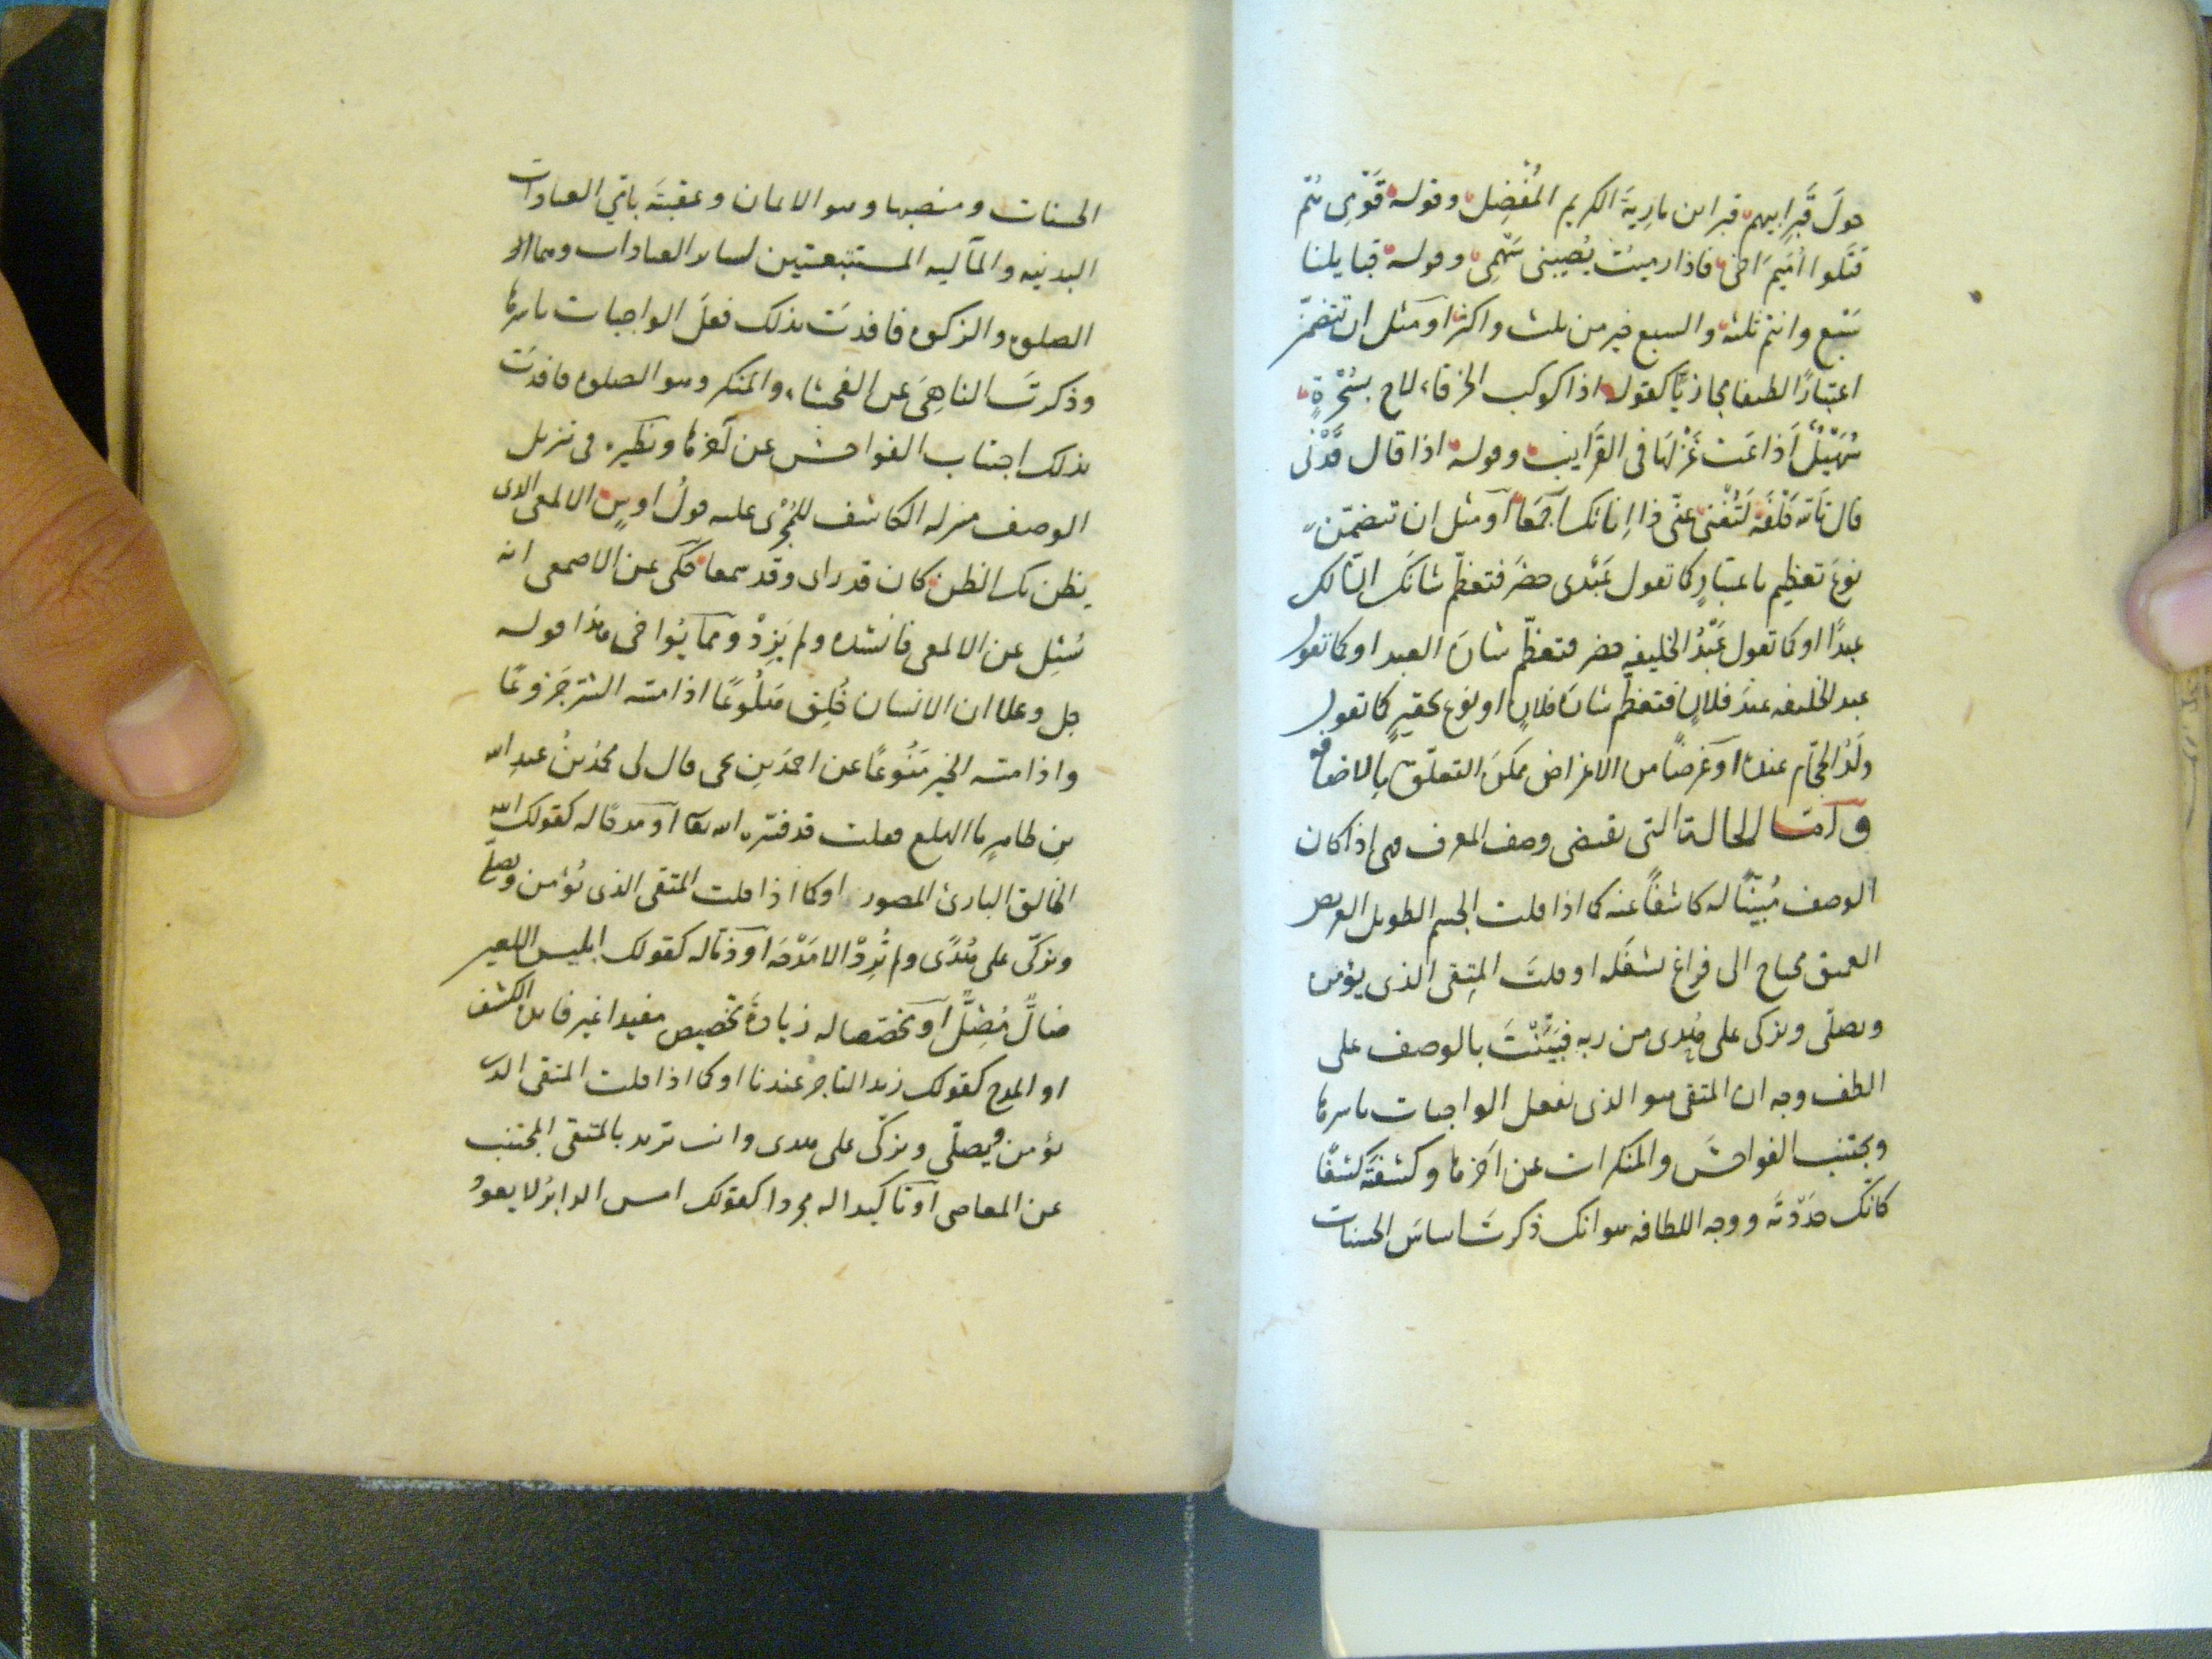 حولَ قَبْرِ ابيهم قبر ابن مارِيةَ الكريم المُفْضِل وقوله قَوْمِى هُم
قَتَلوا اُمَيمَ اخى فاذا رميتُ يُصِيبنى سَهْمِى وقوله قبايلنا
سَبْع وانتم ثلثه وللسبع خير من ثلث واكثر او مثل ان تتضمن
اعتبارًا لطيفا مجازيًّا كقوله اذا كوكب الخرقاء لاح بِسُحْرَةٍ
سُهَيْلٌ أذاعَت غَزْلَهَا فى القَرَايب وقوله اذا قال قَدْنى
قال بالله حَلْفَةً لَتُغْنِىَ عنّى ذا إنائك أجمَعا او مثل ان تتضمّن
نوعَ تعظيم باعتبارٍ كما تقول عَبْدى حضرَ فتعظّم شانَك انّ لك
عبدًا او كما تقول عَبْدُ الخليفه حضر فتعظّم شانَ العبد او كما تقول
عبد الخليفه عندَ فلانٍ فتعظم شانَ فلانٍ او نوع تحقيرٍ كما تقول
ولَدُ الحجّام عندهُ او غرضًا من الاغراض ممكنَ التعلّق بالاضافه
وامّا الحالة التى تقتضى وصف المعرف فهى اذا كان
الوصف مُبيّنًا له كاشفًا عنه كما اذا قلت الجسم الطويل العريض
العميق محتاج الى فراغ يشغَله او قلتَ المتقى الذى يؤمن
ويصلّى ويزكى على هُدى من ربه فبيّنْتَ بالوصف على
الطف وجه ان المتقى هو الذى يفعل الواجبات باسرها
ويجتنب الفواحشَ والمنكرات عن آخرها وكشفتَه كشفًا
كانّك حَدَدتَه ووجه اللطافه هو انك ذكرتَ اساسَ الحسنات
الحسنات ومنصبها وهو الايمان وعقبتَه باقي العبادات
البدنيه والماليه المستتبعتين لساير العبادات وهما
الصلوه والزكوه فافدتَ بذلك فعلَ الواجبات باسرها
وذكرتَ الناهِىَ عن الفحشاء والمنكر وهو الصلوه فافدتَ
بذلك اجتناب الفواحش عن آخرها ونظيره فى تنزيل
الوصف منزله الكاشف للمُجْرى عليه قولُ اوسٍ الالمعى الذى
يظن بك الظن كان قد راى وقد سمعا حُكى عن الاصمعى انه
سُئِل عن الالمعى فانشده ولم يَزِدْ ومما يُواخى هذا قوله
جل وعلا ان الانسان خُلِق هَلُوعًا اذا مسه الشر جَزوعًا
واذا مسه الخير مَنُوعًا عن احمدَ بنِ يحيى قال لى محمدُ بنُ عبدِ الله
بنِ طاهرٍ ما الهلع فقلت قد فسّره الله تعا او مدحًا له كقولك الله
الخالق البارئ المصور او كما اذا قلت المتقى الذى يؤمن ويصلّى
ويزكّى على هُدًى ولم تُرِدْ الا مَدْحَه او ذمًّا له كقولك ابليس اللعين
ضالٌّ مُضِلٌّ او مخصّصا له زيادةَ تخصيص مفيدا غير فايدة الكشف
او المدح كقولك زيد التاجر عندنا او كما اذا قلت المتقى الذى
يؤمن ويصلّى ويزكّى على هدى وانت تريد بالمتقى المجتنب
عن المعاصى او تاكيدا له مجردا كقولك امس الدابرُ لا يعودُ